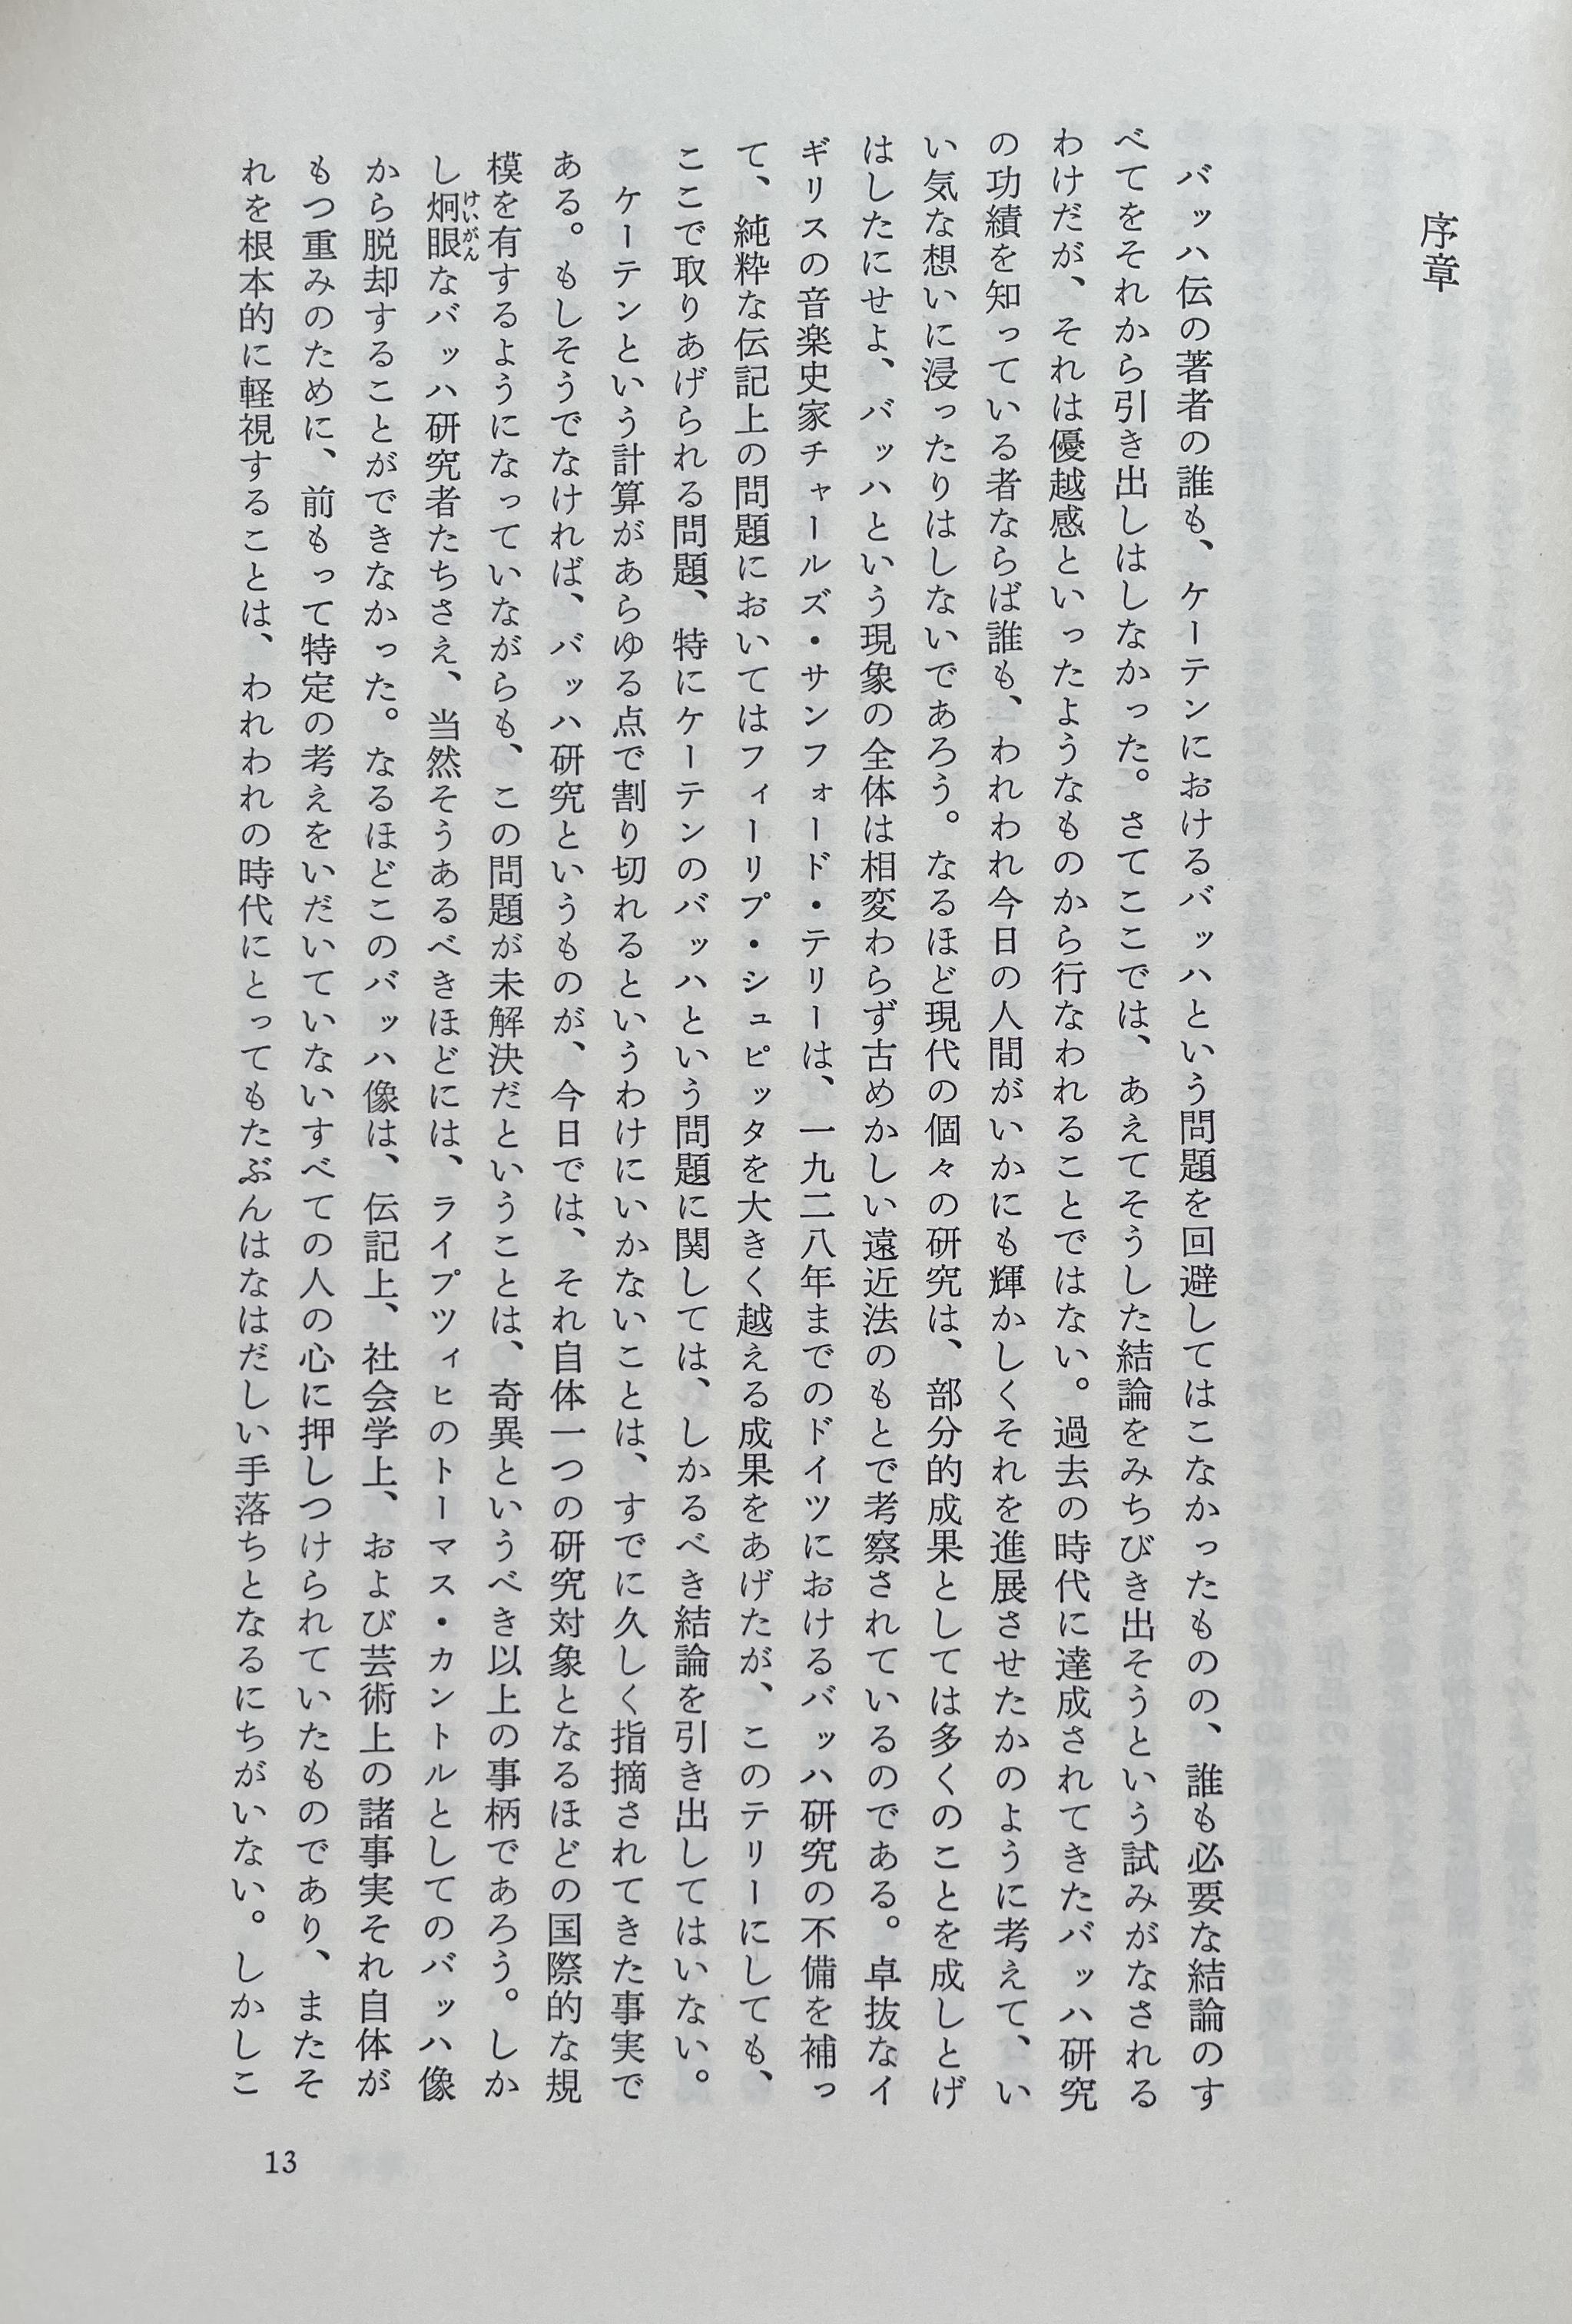 序章
バッハ伝の著者の誰も、ケーテンにおけるバッハという問題を回避してはこなかったものの、誰も必要な結論のす
べてをそれから引き出しはしなかった。さてここでは、あえてそうした結論をみちびき出そうという試みがなされる
わけだが、それは優越感といったようなものから行なわれることではない。過去の時代に達成されてきたバッハ研究
の功績を知っている者ならば誰も、われわれ今日の人間がいかにも輝かしくそれを進展させたかのように考えて、い
い気な想いに浸ったりはしないであろう。なるほど現代の個々の研究は、部分的成果としては多くのことを成しとげ
はしたにせよ、バッハという現象の全体は相変わらず古めかしい遠近法のもとで考察されているのである。卓抜なイ
ギリスの音楽史家チャールズ・サンフォード・テリーは、一九二八年までのドイツにおけるバッハ研究の不備を補っ
て、純粋な伝記上の問題においてはフィーリプ・シュピッタを大きく越える成果をあげたが、このテリーにしても、
ここで取りあげられる問題、特にケーテンのバッハという問題に関しては、しかるべき結論を引き出してはいない。
ケーテンという計算があらゆる点で割り切れるというわけにいかないことは、すでに久しく指摘されてきた事実で
ある。もしそうでなければ、バッハ研究というものが、今日では、それ自体一つの研究対象となるほどの国際的な規
模を有するようになっていながらも、この問題が未解決だということは、奇異というべき以上の事柄であろう。しか
し炯眼けいがんなバッハ研究者たちさえ、当然そうあるべきほどには、ライプツィヒのトーマス・カントルとしてのバッハ像
から脱却することができなかった。なるほどこのバッハ像は、伝記上、社会学上、および芸術上の諸事実それ自体が
もつ重みのために、前もって特定の考えをいだいていないすべての人の心に押しつけられていたものであり、またそ
れを根本的に軽視することは、われわれの時代にとってもたぶんはなはだしい手落ちとなるにちがいない。しかしこ
13